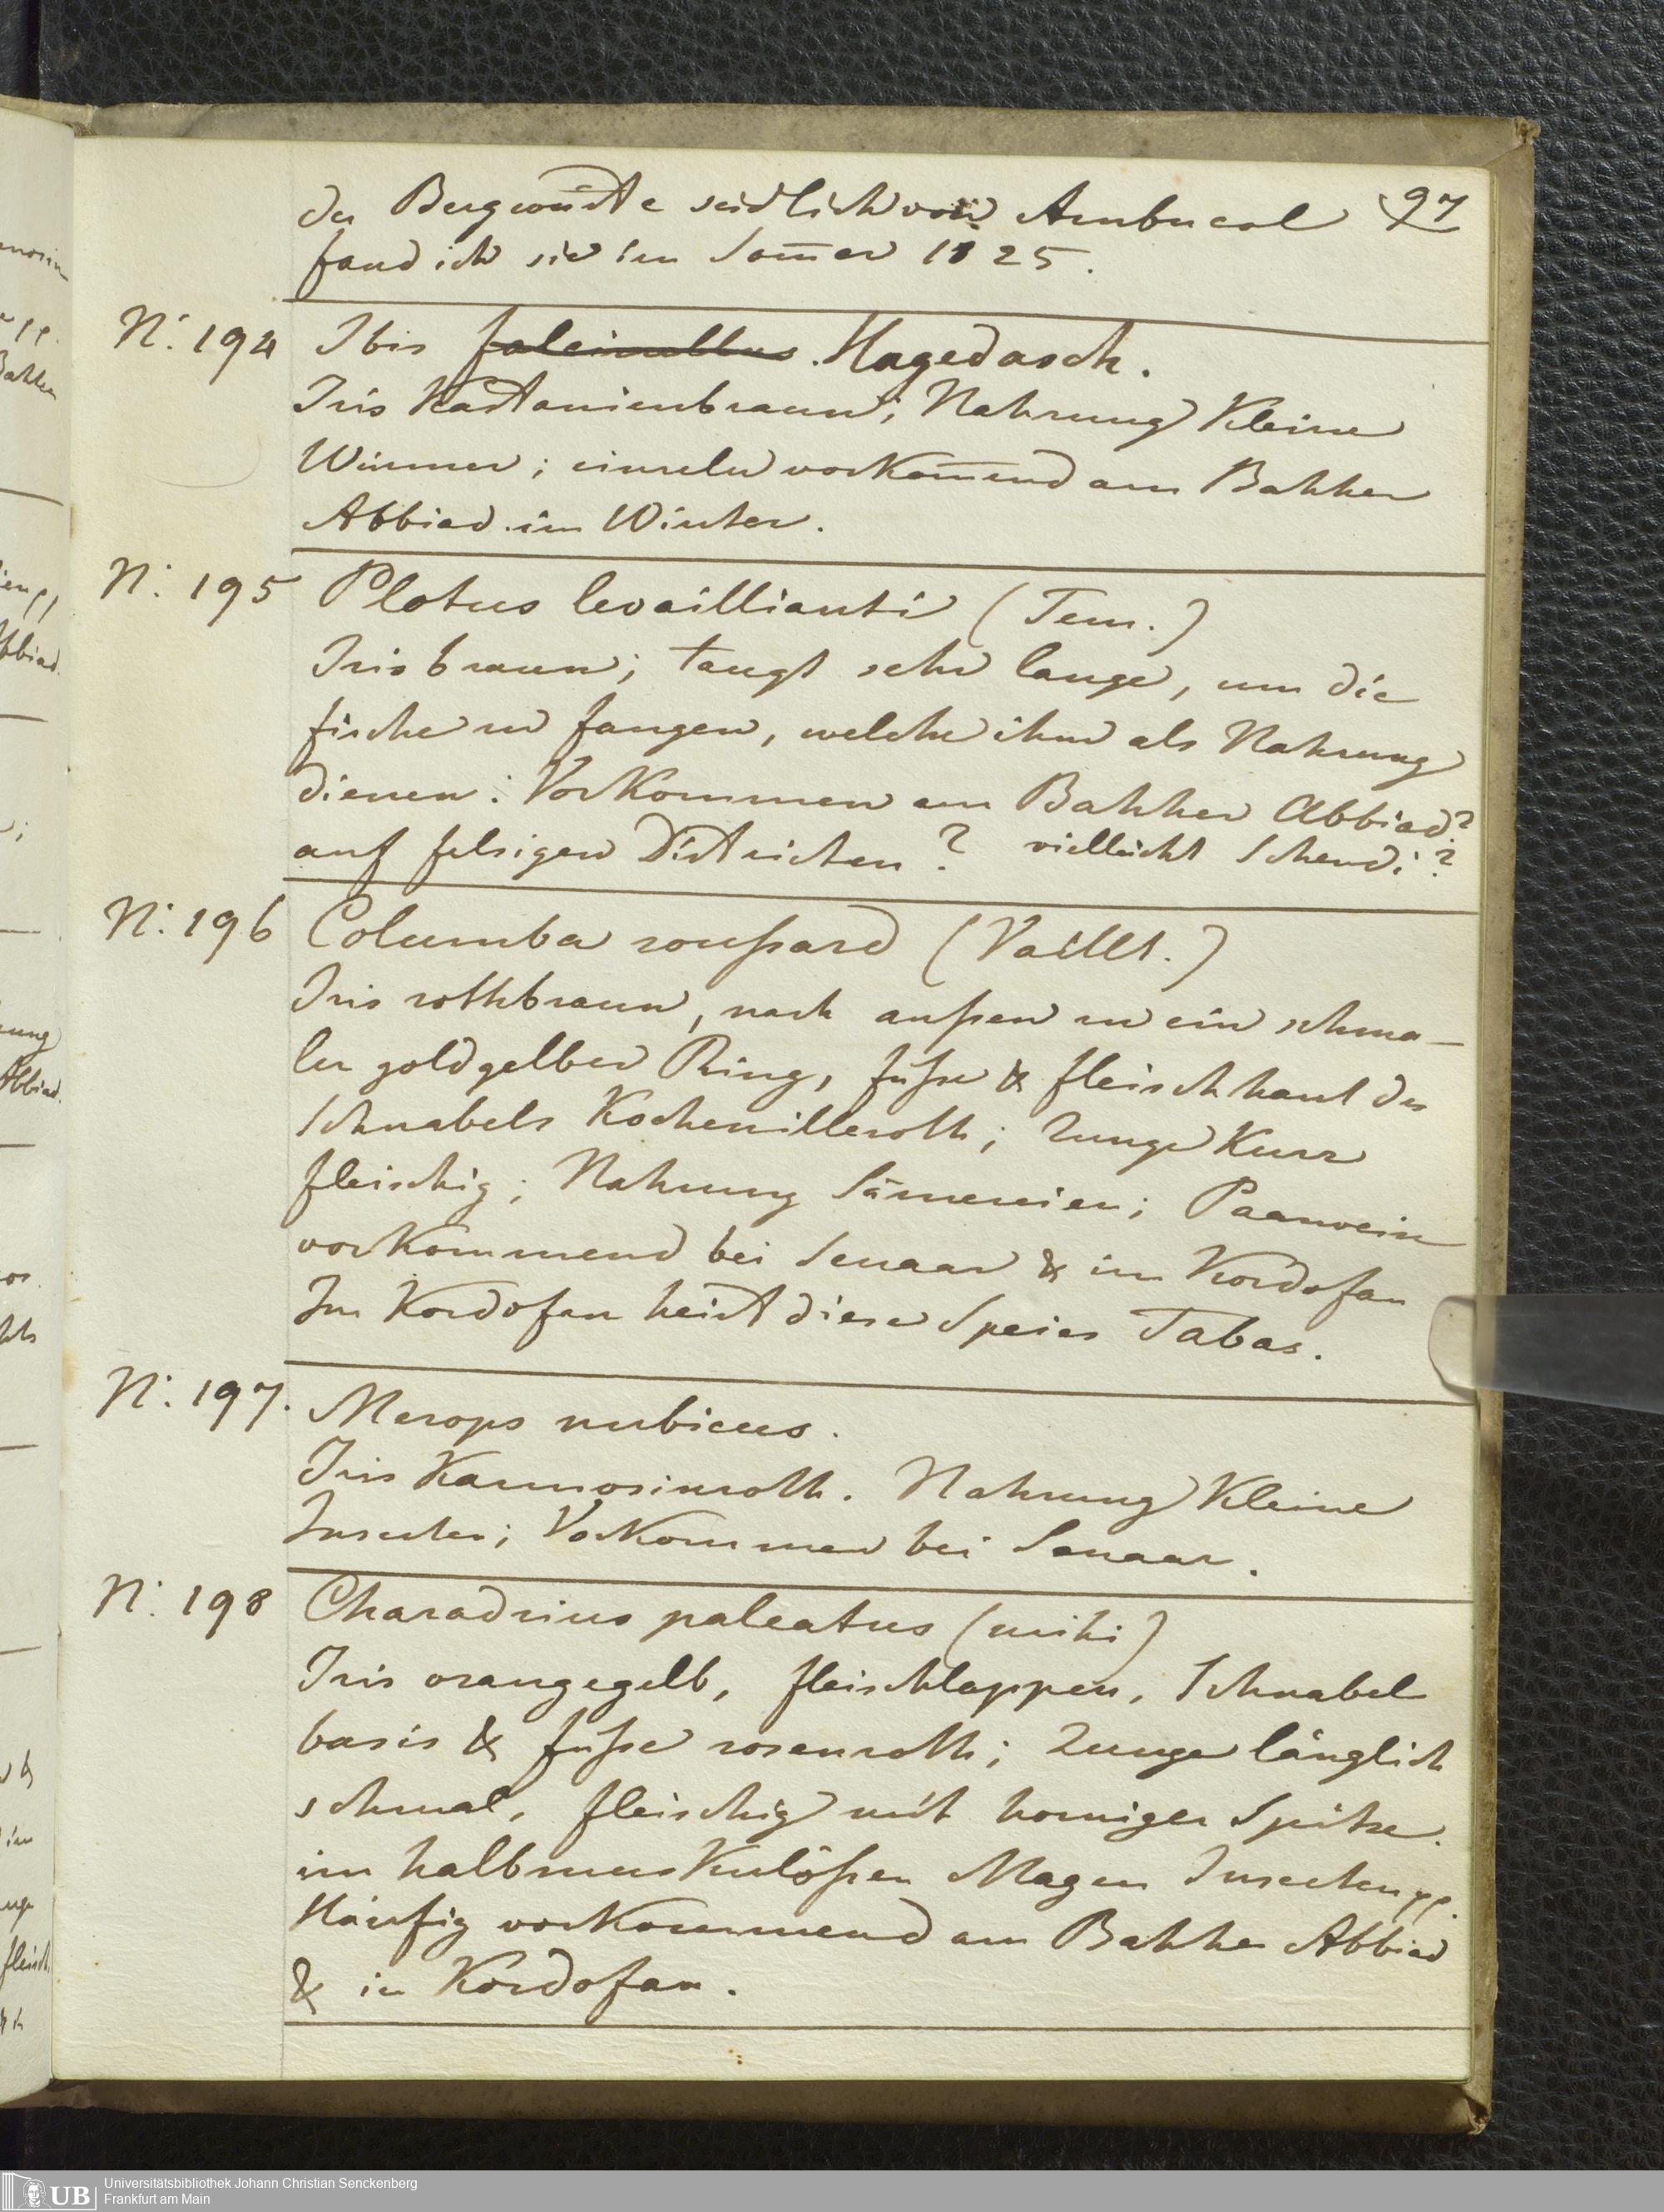 97
der Bergwüste südlich von Ambucol
fand ich sie im Som̄er 1825.
N: 194 Ibis falcinellus. Hagedasch.
Iris Kastanienbraun; Nahrung Kleine
Würmer; einzeln vorkom̄end am Bahher
Abbiad im Winter.
N: 195 Plotus levaillianti (Tem.)
Iris braun; taugt sehr lange, um die
fische zu fangen, welche ihm als Nahrung
dienen. Vorkommen am Bahher Abbiad?
auf felsigen Districten? vielleicht Schendi?
N: 196 Columba roußard (Vaillt.)
Iris rothbraun, nach außen zu ein schma-
ler goldgelber Ring, füße & fleischhaut des
Schnabels Kochenilleroth; Zunge Kurz
fleischig; Nahrung Sämereien; Paarwein
vorkommend bei Senaar & im Kordofan
Im Kordofan heist diese Speies Tabas.
N: 197. Merops nubicus.
Iris Karmosinroth. Nahrung Kleine
Insecten; Vorkommen bei Senaar.
N: 198 Charadrius paleatus (mihi)
Iris orangegelb, fleischlappen, Schnabel
basis & füße rosenroth; Zunge länglich
schmal, fleischig mit horniger Spitze.
im halbmuskulößen Magen Insecten pp.
Häufig vorkommend am Bahher Abbiad
& in Kordofan.
UB
Universitätsbibliothek Johann Christian Senckenberg
Frankfurt am Main